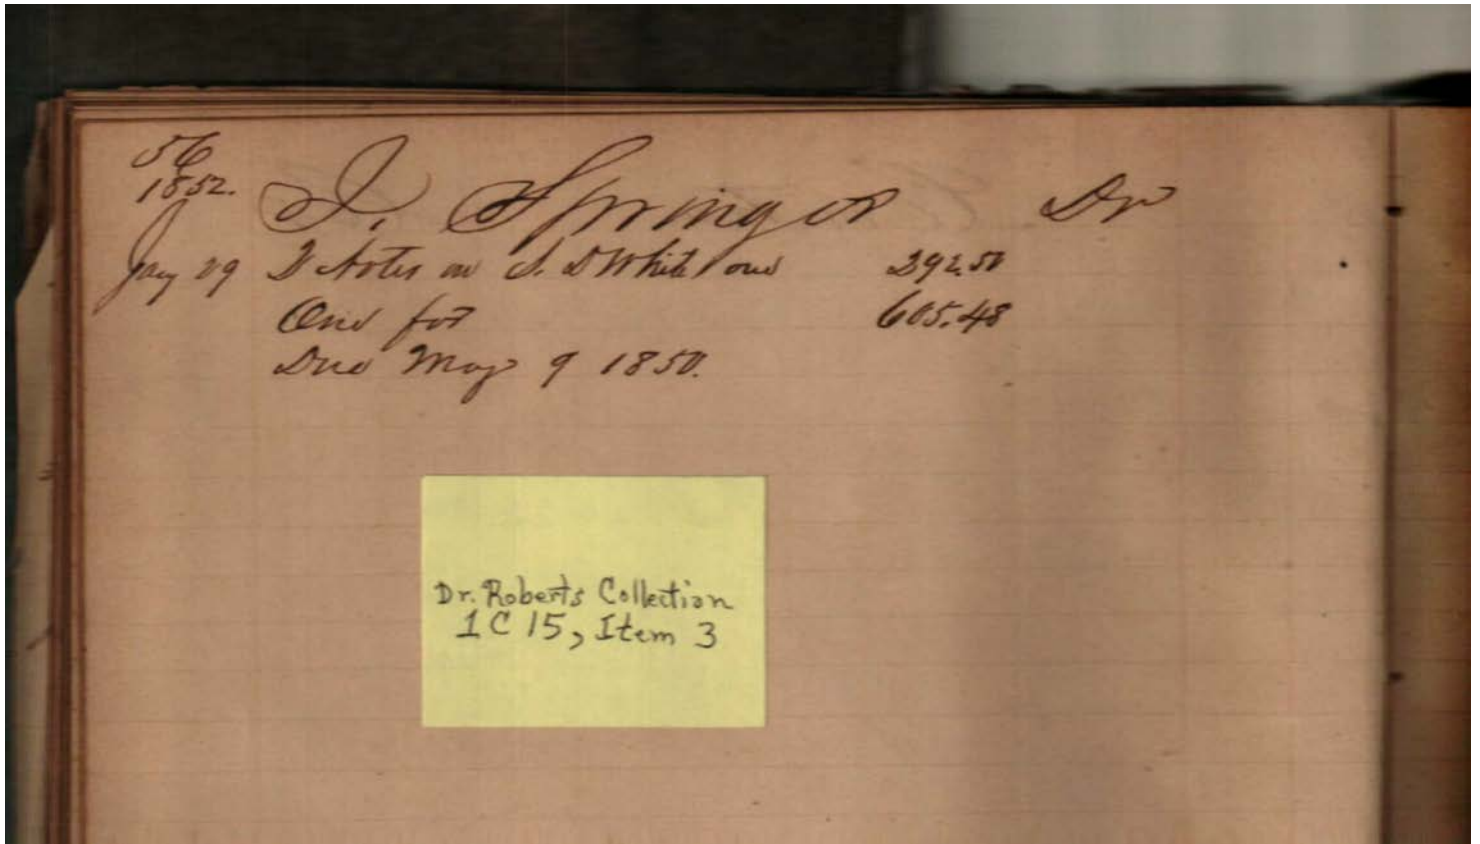 56
1852.
I. Springer Dr
Jay 29 2 Notes on S. D White one 292.50
One for 605.48
Due May 9 1850.
Dr. Roberts Collection
1 C 15, Item 3